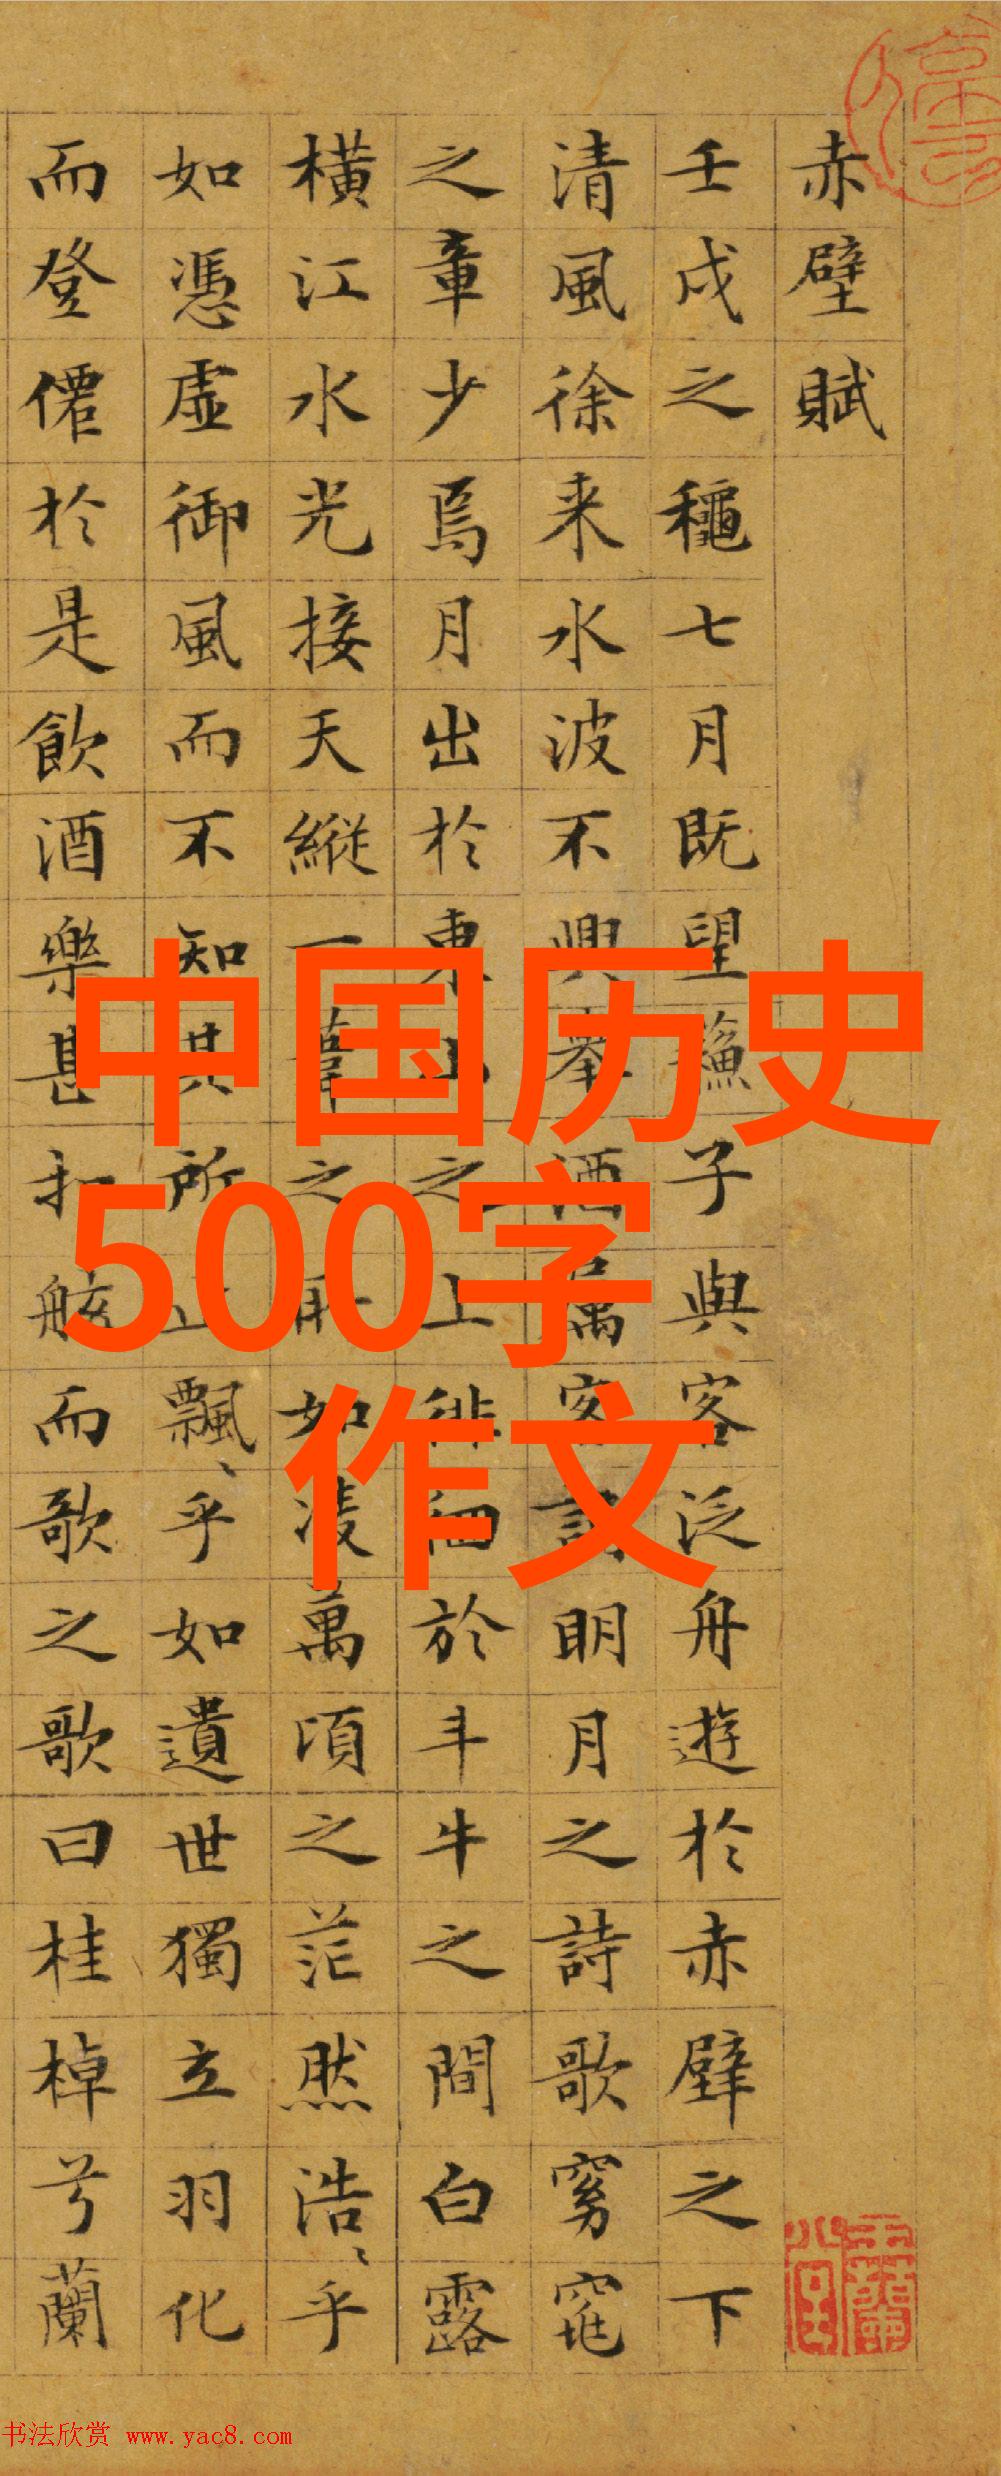 赤壁賦
壬戌之穐七月既望蘓子與客泛舟遊於赤壁之下
清風徐来水波不興舉酒属客誦明月之詩歌窈窕
之章少焉月出於東山之上徘徊於斗牛之間白露
橫江水光接天縱一葦之所如凌萬頃之茫然浩〻乎
如憑虛御風而不知其所止飄〻乎如遺世獨立羽化
而登僊於是飲酒樂甚扣舷而歌之歌曰桂棹兮蘭
中国历史
500字
作文
书法欣赏 www.yac8.com